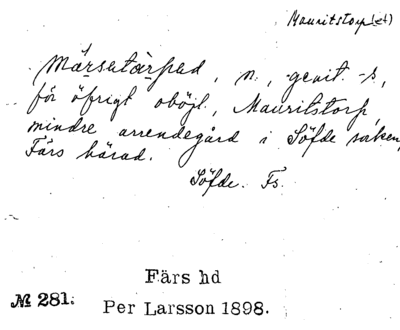 Mauritstorp(et)
Märsatärpad, n., genit. -s,
för öfrigt oböjl., Mauritstorp,
mindre arrendegård i Söfde socken,
Färs härad.
Söfde. Fs.
Färs hd
№ 281.
Per Larsson 1898.